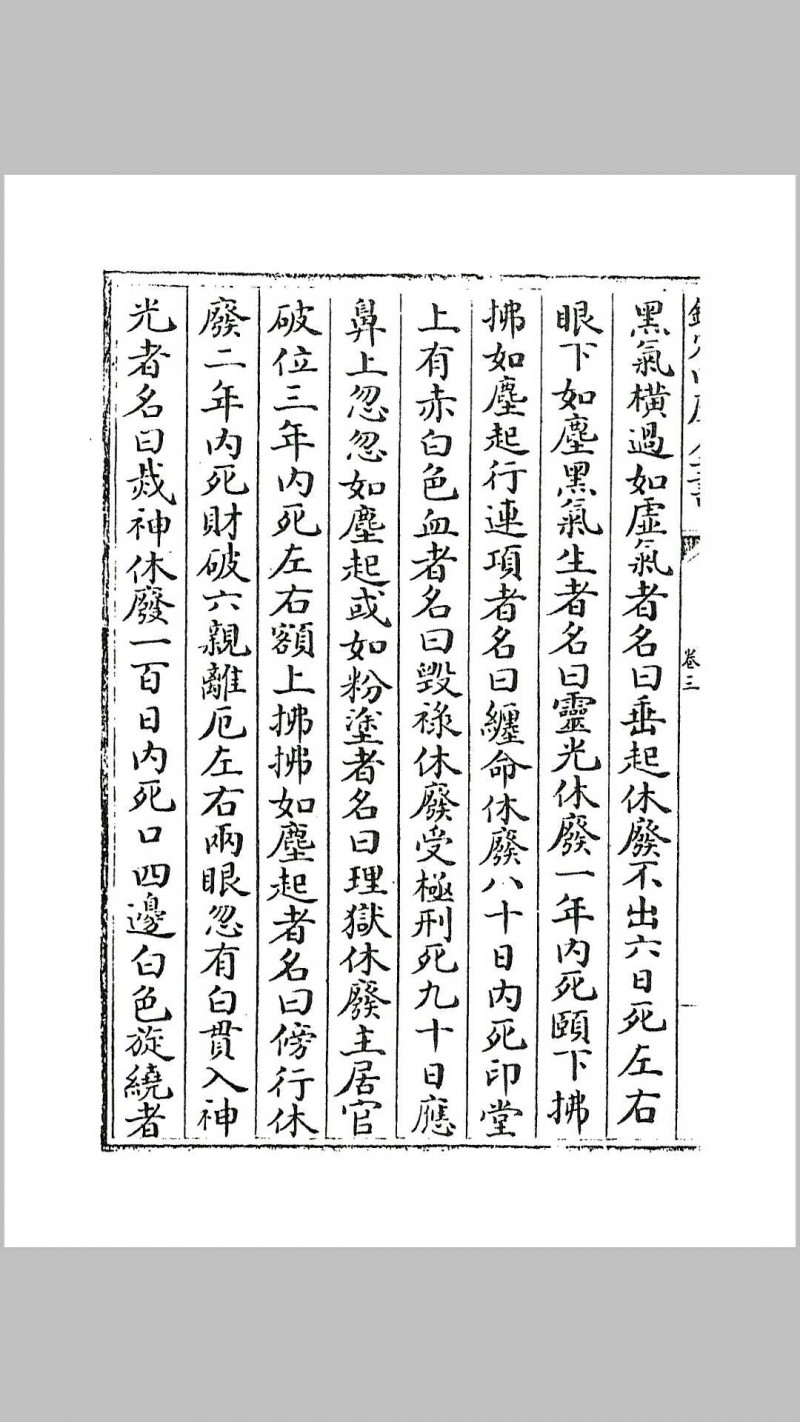 欽定四庫全書
卷三
黑氣橫過如虛氣者名曰垂起休廢不出六日死左右
眼下如塵黑氣生者名曰靈光休廢一年內死頤下拂
拂如塵起行連項者名曰纒命休廢八十日內死印堂
上有赤白色血者名曰毀祿休廢受極刑死九十日應
鼻上忽忽如塵起或如粉塗者名曰理獄休廢主居官
破位三年內死左右額上拂拂如塵起者名曰傍行休
廢二年內死財破六親離厄左右兩眼忽有白貫入神
光者名曰烖神休廢一百日內死口四邊白色旋繞者